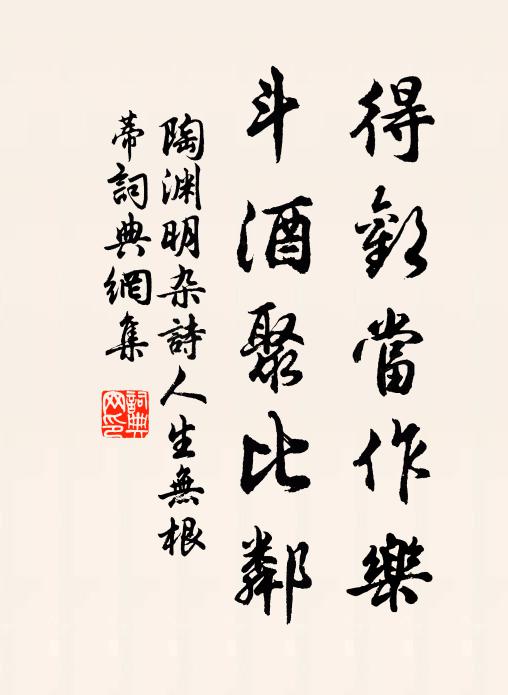 得歡當作樂
斗酒聚比鄰
陶渊明杂詩人生無根
蒂詞典網集
詞典
网印